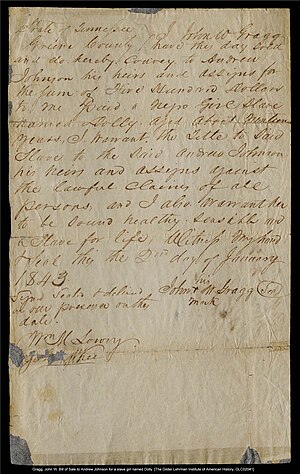 State of Tennessee
Greene County
I John W Gragg
have this day sold
and do hereby Convey to Andrew
Johnson his heirs and assigns for
the sum of Five Hundred Dollars
to me Paid a Negro Girl Slave
named Dolly aged about Nineteen
years, I Warrant the title to Said
Slave to the Said Andrew Johnson
his heirs and assigns against
the lawful Claims of all
persons, and I also Warrant her
to be Sound healthy Sensible and
a Slave for life, Witness my hand &
Seal this the 2nd day of January
1843
Signed Sealed & delivered
in our presence on this
date.
his
John W Gragg Seal
mark
Wm M Lowry
Gragg, John W. Bill of Sale to Andrew Johnson for a slave girl named Dolly. [The Gilder Lehrman Institute of American History, GLC02041]